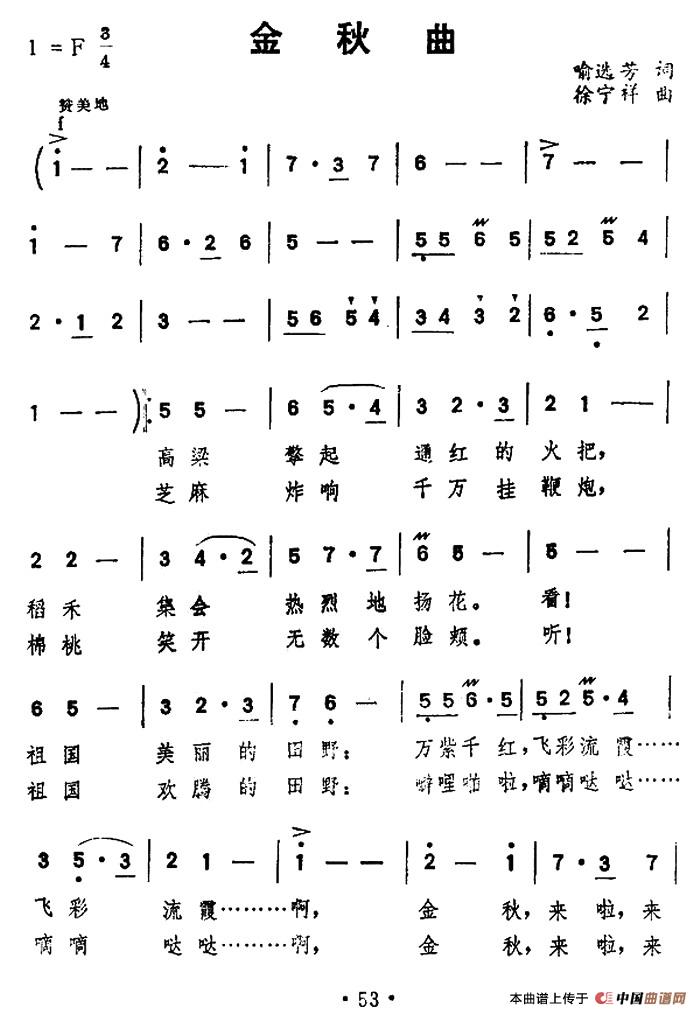 金秋曲
1=F 3/4
喻选芳 词
徐宁祥 曲
赞美地
f
( 1 — — | 2 — 1 | 7 · 3 7 | 6 — — | 7 — — |
1 — 7 | 6 · 2 6 | 5 — — | 5 5 6 5 | 5 2 5 4 |
2 · 1 2 | 3 — — | 5 6 5 4 | 3 4 3 2 | 6 · 5 2 |
1 — — ) |: 5 5 — | 6 5 · 4 | 3 2 · 3 | 2 1 — |
高梁 擎起 通红的火把，
芝麻 炸响 千万挂鞭炮，
2 2 — | 3 4 · 2 | 5 7 · 7 | 6 5 — | 5 — — |
稻禾 集会 热烈地扬花。看！
棉桃 笑开 无数个脸颊。听！
6 5 — | 3 2 · 3 | 7 6 — | 5 5 6 · 5 | 5 2 5 · 4 |
祖国 美丽的田野：万紫千红，飞彩流霞……
祖国 欢腾的田野：噼哩啪啦，嘀嘀哒哒……
3 5 · 3 | 2 1 — | 1 — — | 2 — 1 | 7 · 3 7 |
飞彩 流霞………啊， 金 秋，来啦，来
嘀嘀 哒哒………啊， 金 秋，来啦，来
· 53 ·
本曲谱上传于 中国曲谱网